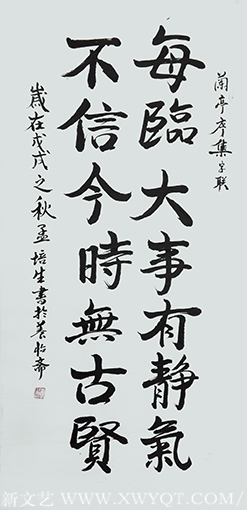 蘭亭序集字联
每臨大事有靜氣
不信今時無古賢
歲在戊戌之秋孟培生書於養怡齋
新文艺/WWW.XWYQT.COM/